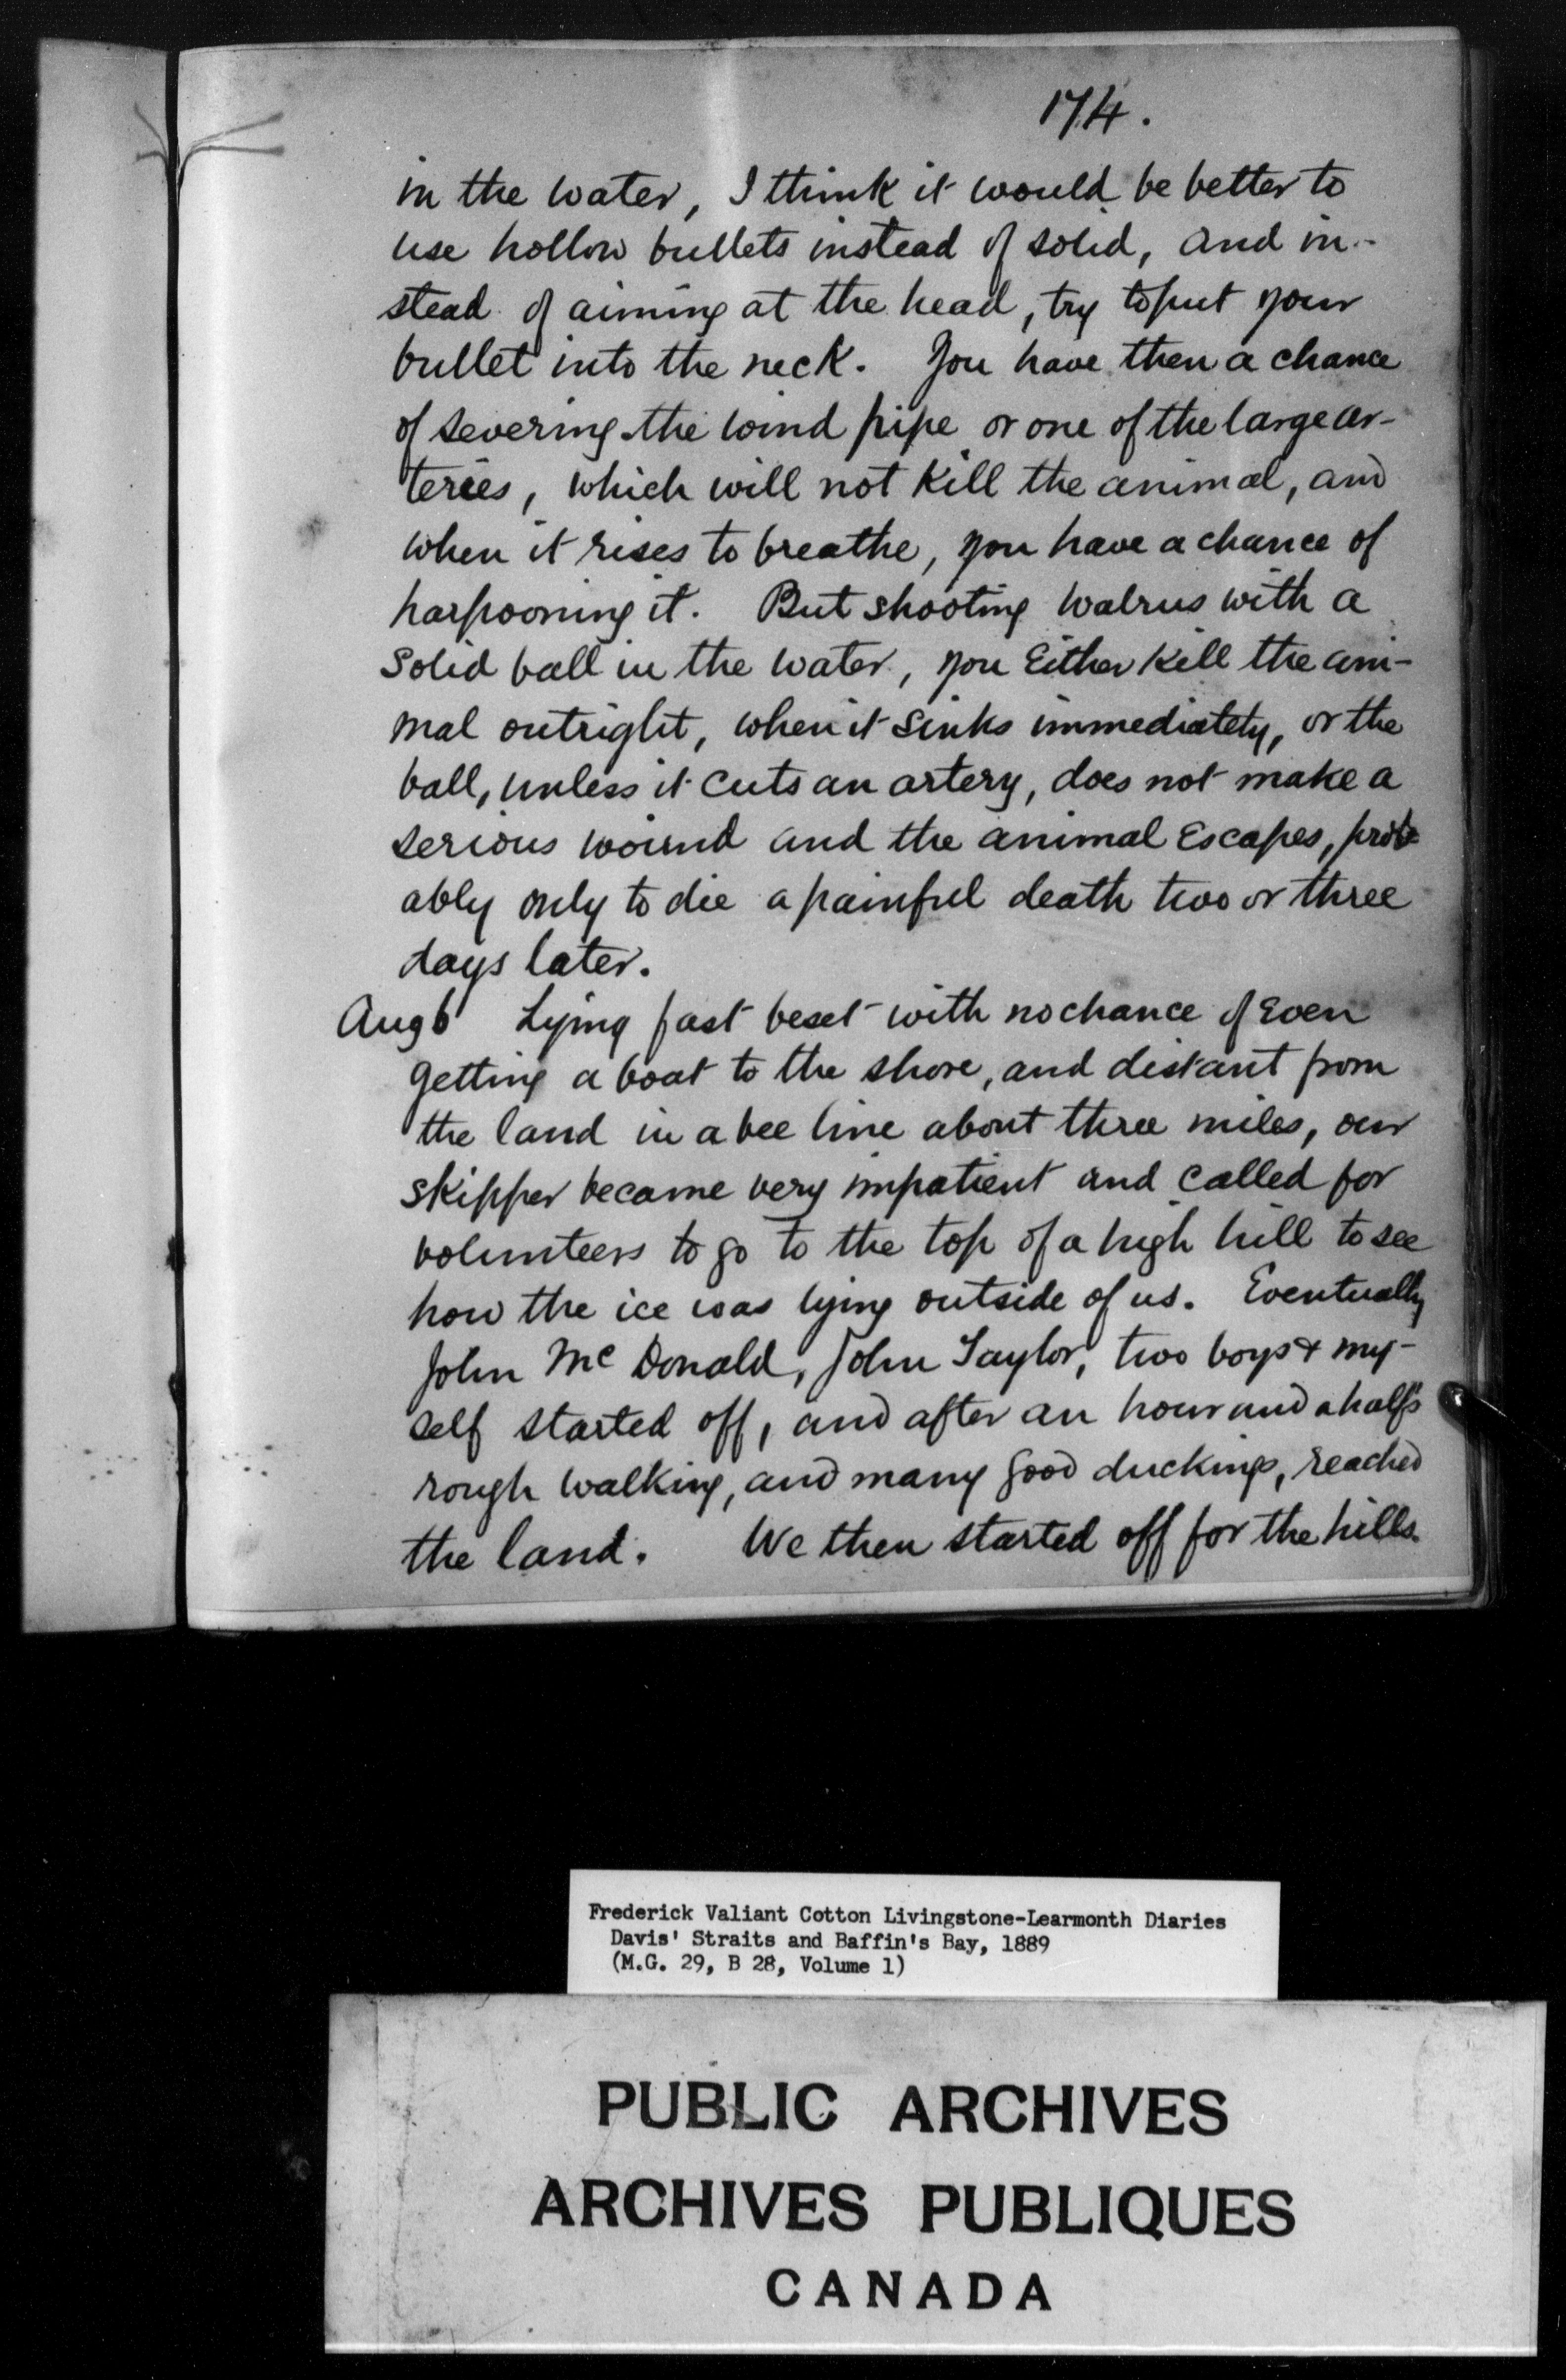 174.
in the water, I think it would be better to
use hollow bullets instead of solid, and in-
stead of aiming at the head, try to put your
bullet into the neck. You have then a chance
of severing the wind pipe or one of the large ar-
teries, which will not kill the animal, and
when it rises to breathe, you have a chance of
harpooning it. But shooting walrus with a
solid ball in the water, you either kill the ani-
mal outright, when it sinks immediately, or the
ball, unless it cuts an artery, does not make a
serious wound and the animal escapes, prob-
ably only to die a painful death two or three
days later.
Aug 6 Lying fast beset with no chance of even
getting a boat to the shore, and distant from
the land in a bee line about three miles, our
skipper became very impatient and called for
volunteers to go to the top of a high hill to see
how the ice was lying outside of us. Eventually
John McDonald, John Taylor, two boys & my-
self started off, and after an hour and a half's
rough walking, and many good duckings, reached
the land. We then started off for the hills.
Frederick Valiant Cotton Livingstone-Learmonth Diaries
Davis' Straits and Baffin's Bay, 1889
(M.G. 29, B 28, Volume 1)
PUBLIC ARCHIVES
ARCHIVES PUBLIQUES
CANADA